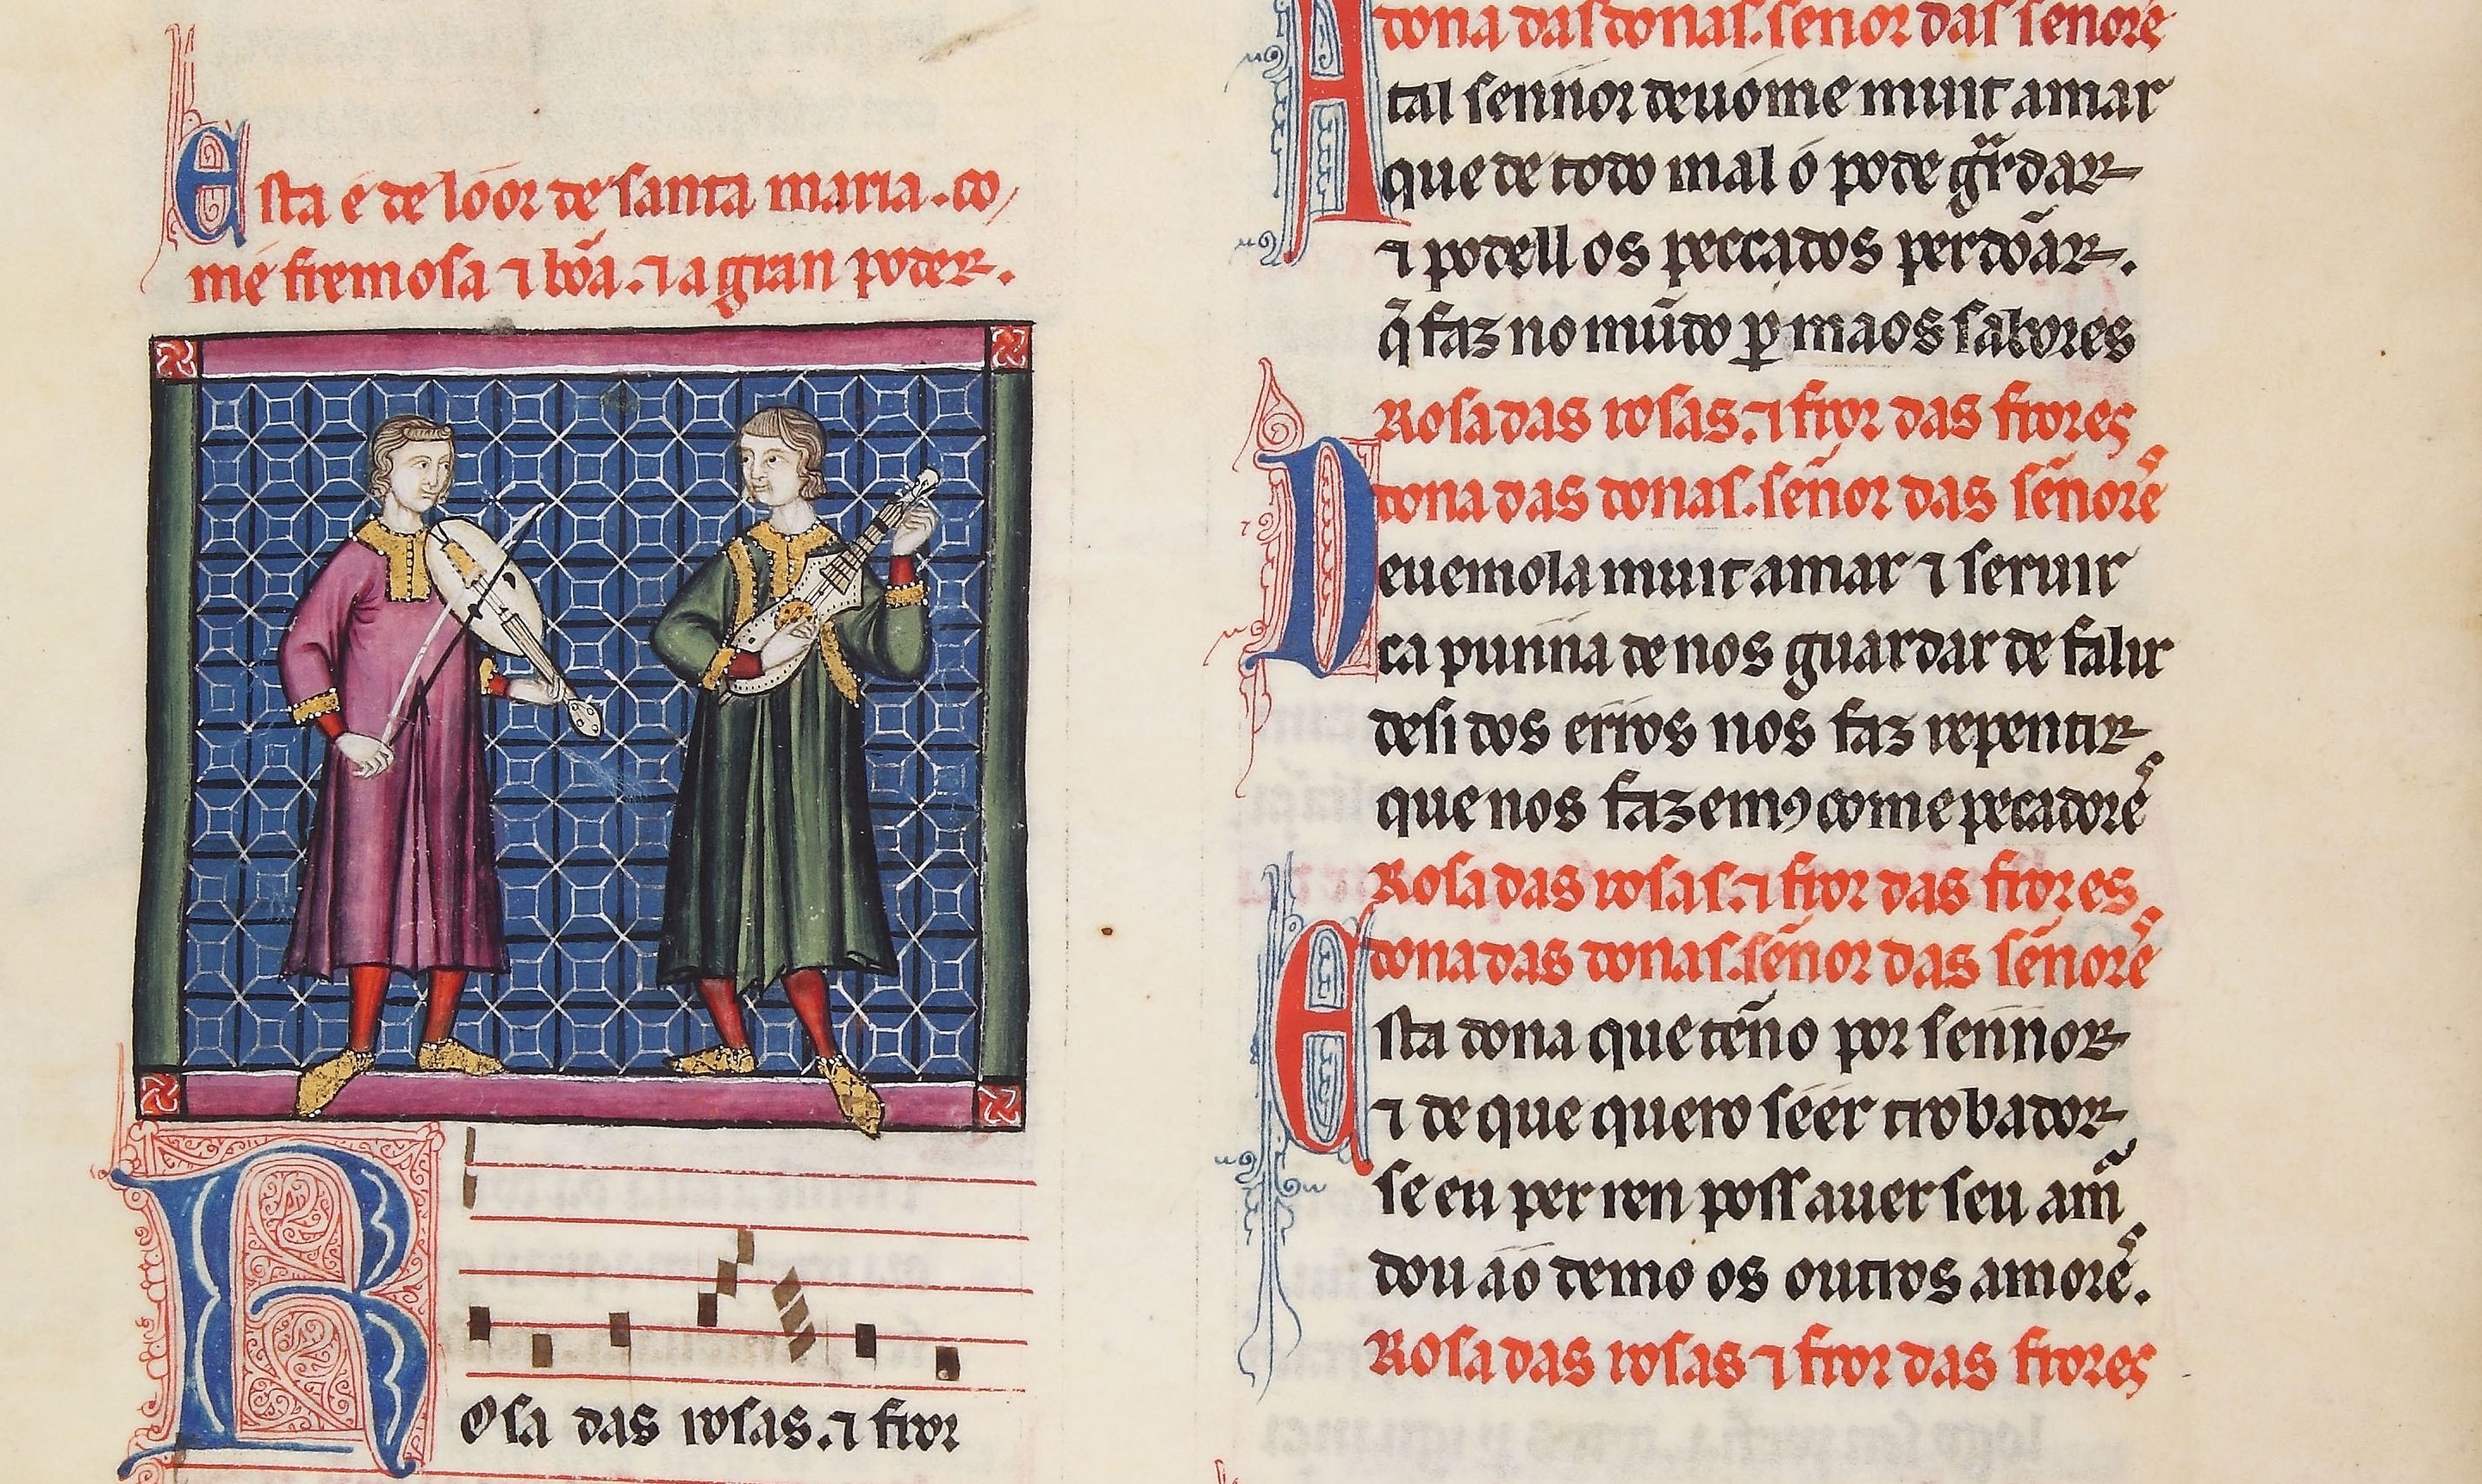 Esta é de loor de santa maria. co/
mé fremosa ⁊ bõa. ⁊ a gran poder.
Rosa das rosas. ⁊ fror
dona das donas. senor das senores
A tal sennor deuome muit amar
que de todo mal ó pode gͣrdar
⁊ podell os peccados perdõar.
q̃ faz no mũdo ꝑ maos sabores
Rosa das rosas. ⁊ fror das frores
dona das donas. señor das señores
Deuemola muit amar ⁊ seruir
ca punna de nos guardar de falir
desi dos erros nos faz repentir
que nos fazemꝯ come pecadores
Rosa das rosas. ⁊ fror das frores
dona das donas. señor das señores
Esta dona que teño por sennor
⁊ de que quero séér trobador
se eu per ren poss auer seu amͬ
dou aó demo os outros amores.
Rosa das rosas ⁊ fror das frores